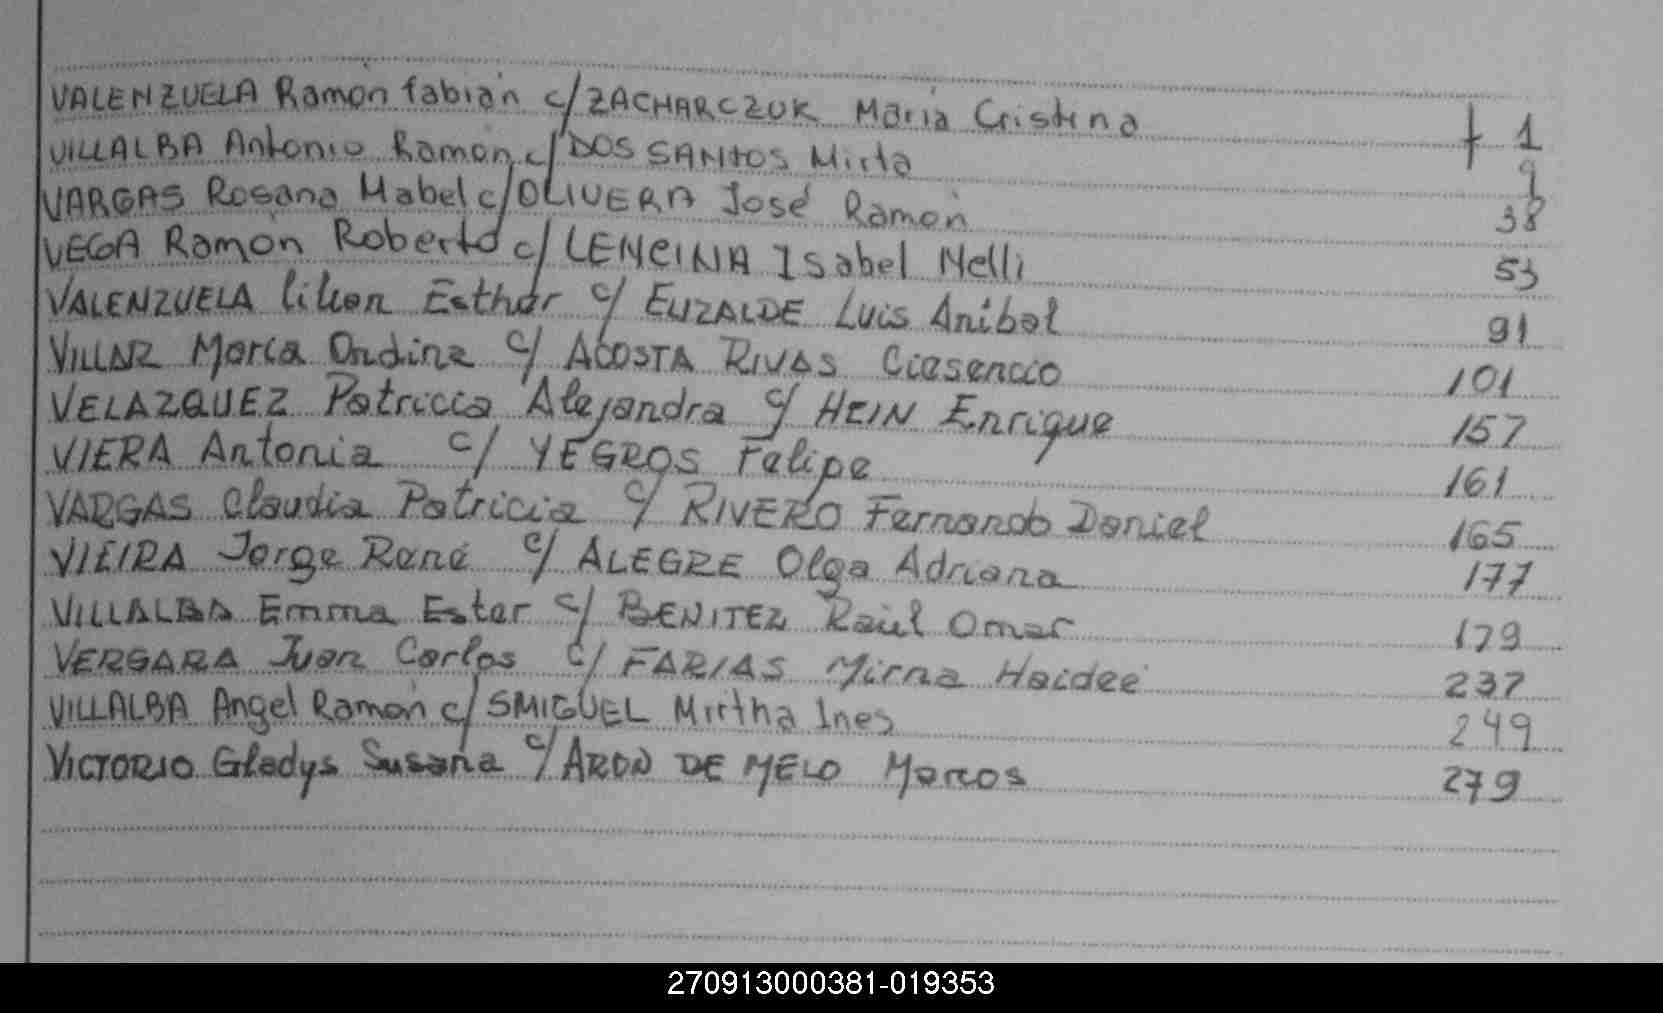 VALENZUELA Ramón fabián c/ ZACHARCZUK María Cristina f 1
VILLALBA Antonio Ramón c/ DOS SANTOS Mirta 9
VARGAS Rosana Mabel c/ OLIVERA José Ramón 38
VEGA Ramón Roberto c/ LENCINA Isabel Nelli 53
VALENZUELA lilian Esther c/ ELIZALDE Luis Anibal 91
VILLAR María Ondina c/ ACOSTA RIVAS 101
VELAZQUEZ Patricia Alejandra c/ HEIN Enrique 157
VIERA Antonia c/ YEGROS Felipe 161
VARGAS Claudia Patricia c/ RIVERO Fernando Daniel 165
VIEIRA Jorge René c/ ALEGRE Olga Adriana 177
VILLALBA Emma Ester c/ BENITEZ Raúl Omar 179
VERGARA Juan Carlos c/ FARIAS Mirna Haidee 237
VILLALBA Angel Ramón c/ SMIGUEL Mirtha Ines 249
VICTORIO Gladys Susana c/ ARON DE MELO Marcos 279
270913000381-019353